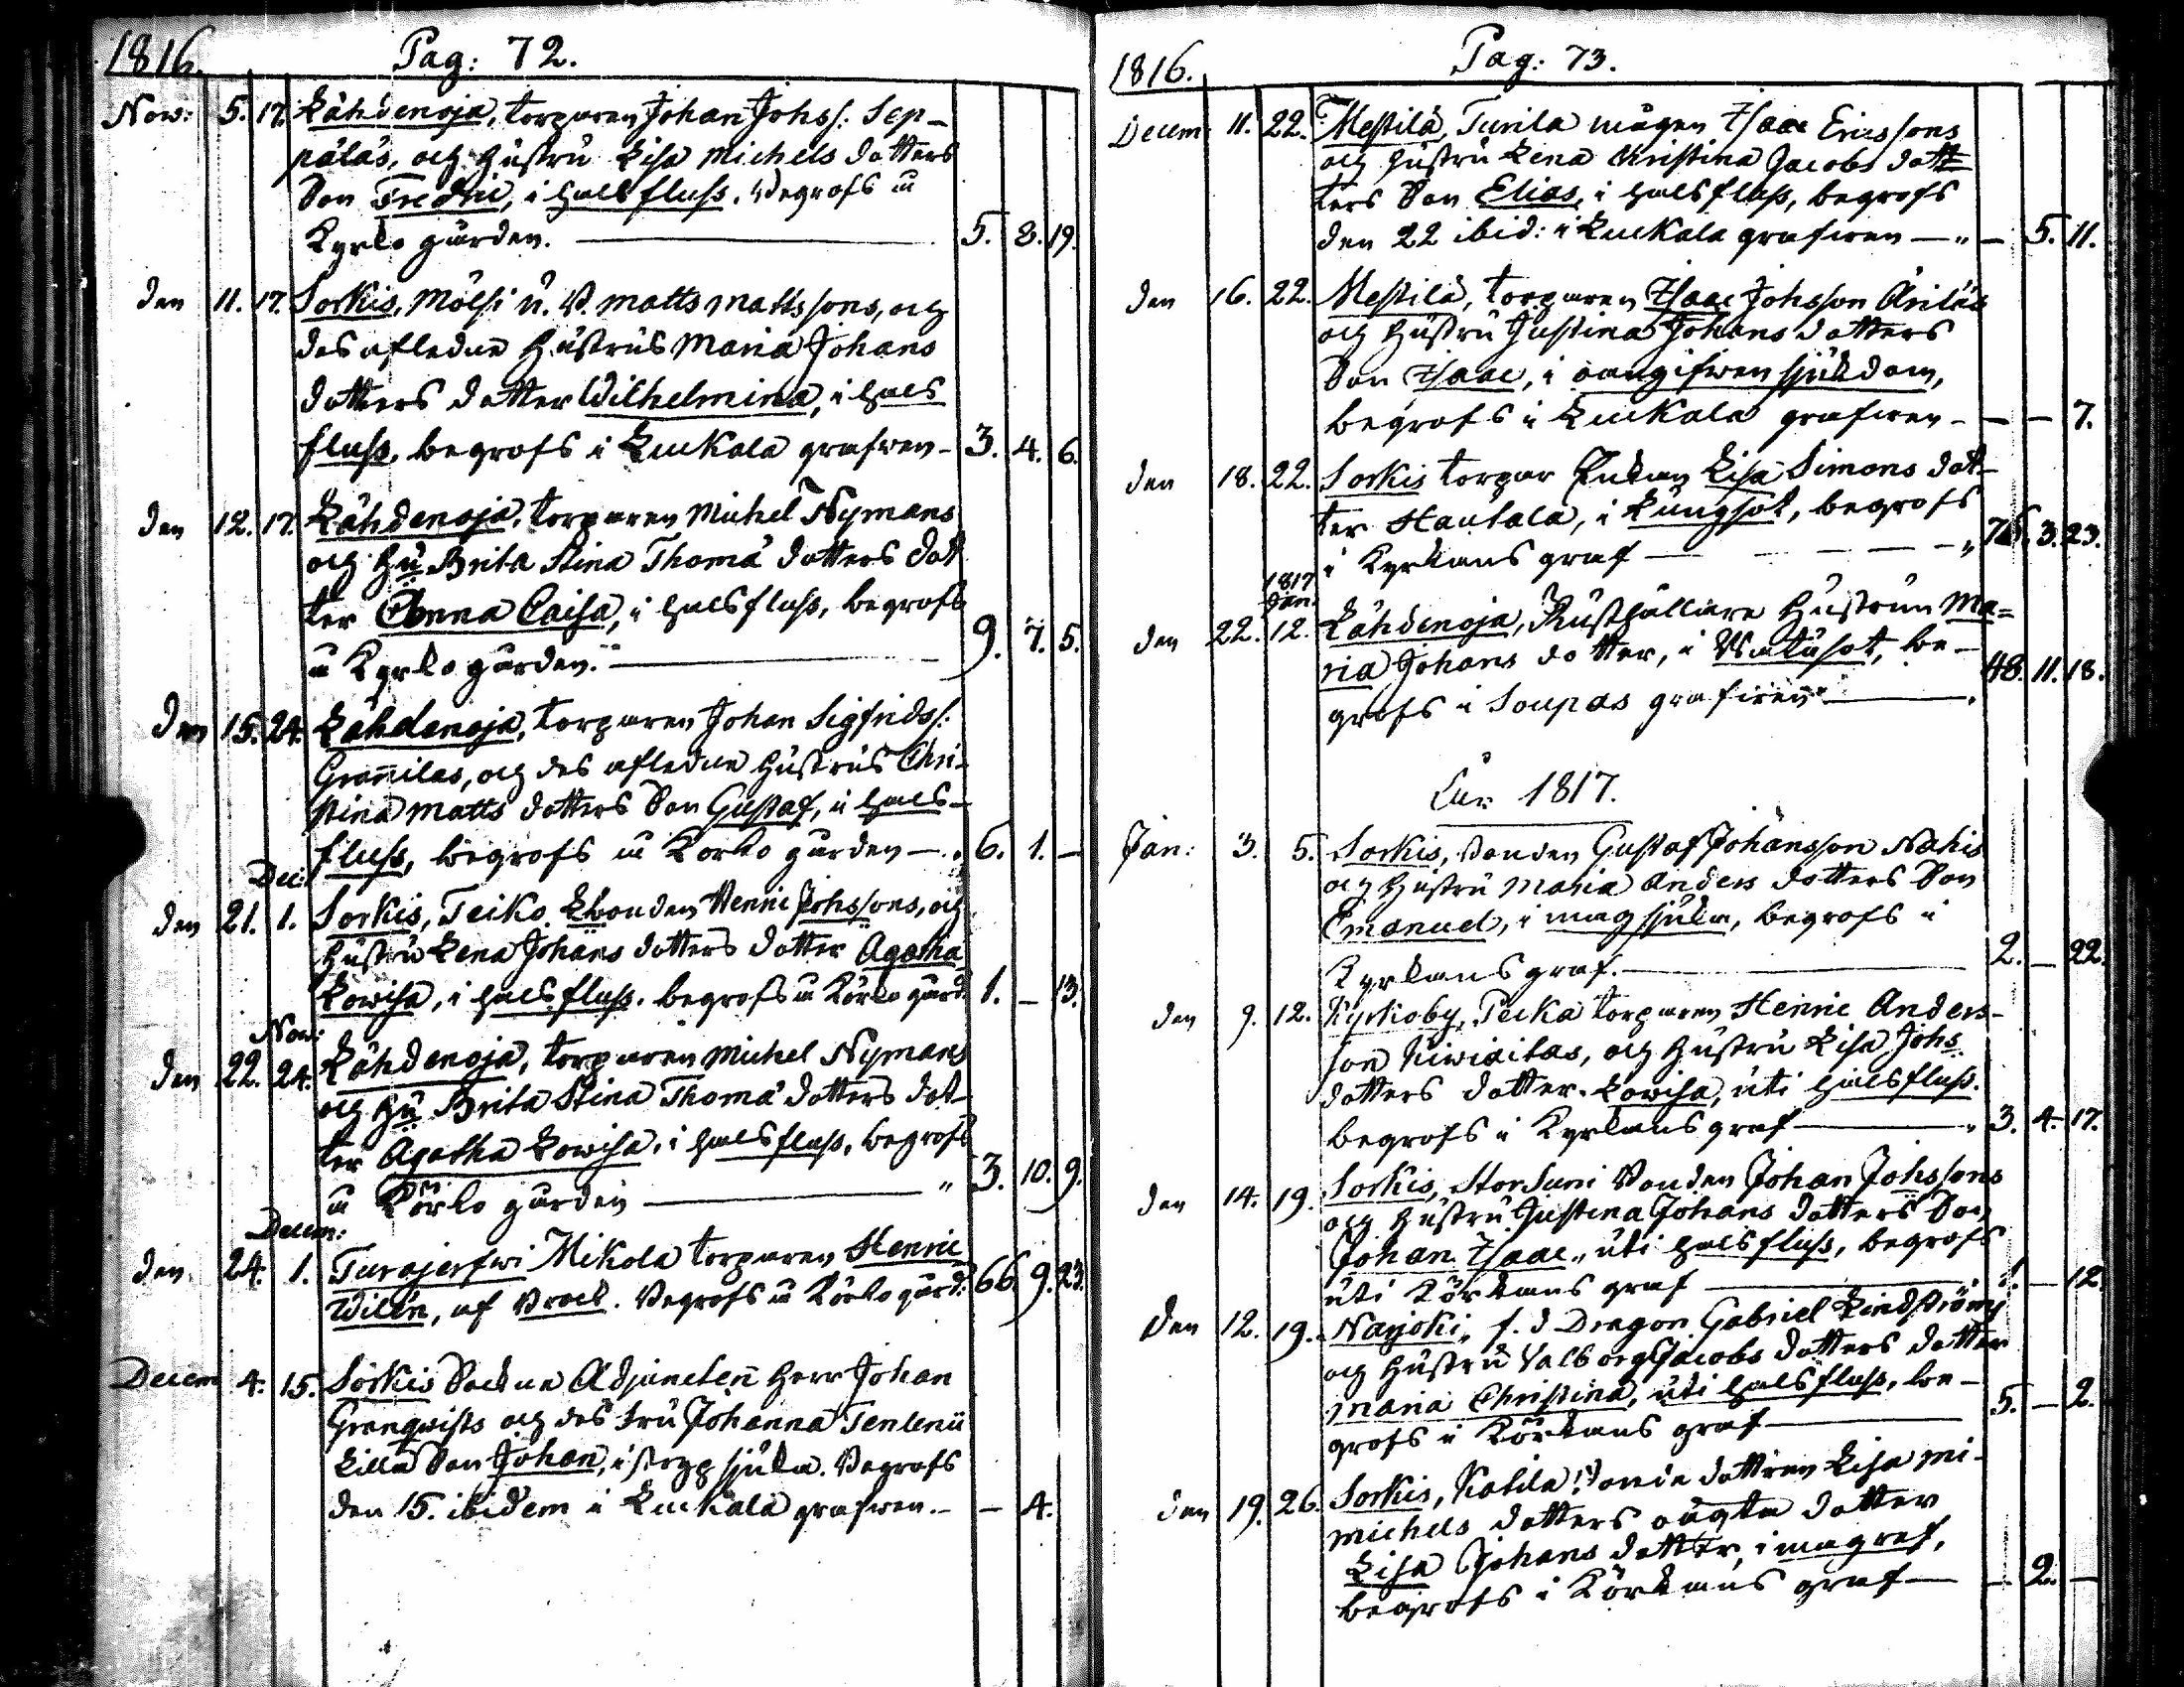 1816. Pag: 72.
Now: 5. 17. Lähdenoja, torparen Johan Johss: Sep-
päläs, och hustru Lisa Michels dotters
Son Fredric, i halsfluss. Begrofs å
Kyrko gården. 5. 8. 19.
den 11. 17. Sorkis, Mölsi u. b. Matts Mattssons, och
des afledne Hustrus Maria Johans
dotters dotter Wilhelmina, i hals
fluss, begrofs i Luckala grafwen- 3. 4. 6.
den 12. 17. Lähdenoja, torparen Michel Nymans
och Hu Brita Stina Thomä dotters dot
ter Anna Caisa, i halsfluss, begrofs
å Kyrko gården. 9. 7. 5.
den 15. 24. Lähdenoja, torparen Johan Sigfridss:
Grannilas, och des afledne hustrus Chri-
stina Matts dotters Son Gustaf, i hals-
fluss, begrofs å Körko gården 6. 1. -
Dec:
den 21. 1. Sorkis, Teiko Lbonden Henric Johssons, och
hustru Lena Johans dotters dotter Agatha
Lowisa, i halsfluss. begrofs å Körko gård: 1. - 13.
Now:
den 22. 24. Lähdenoja, torparen Michel Nymans
och Hu Brita Stina Thomä dotters dot-
ter Agatha Lowisa, i halsfluss, begrofs
å Körko gården " 3. 10. 9.
Decem:
den 24. 1. Turajerfwi Mikola torparen Henric
Wilén, af Brock. Begrofs å Körko gård: 66. 9. 23.
Decem 4. 15. Sorkis Sockne Adjuncten Herr Johan
Granqwists och des fru Johanna Tenlenii
Lilla Son Johan, i stryp sjuka. Begrofs
den 15. ibidem i Luckala grafwen.- - 4.
1816. Pag: 73.
Decem: 11. 22. Mestilä, Turila mågen Isaac Ericssons
och hustru Lena Kristina Jacobs dott
ters Son Elias, i halsfluss, begrofs
den 22 ibid: i Luckala grafwen - 5. 11.
den 16. 22. Mestilä, torparen Isaac Johsson Äriläs
och hustru Justina Johans dotters
Son Isaac, i oangifwen sjukdom,
begrofs i Luckala grafwen - - - 7.
den 18. 22. Sorkis torpar Enkan Lisa Simons dot-
ter Hautala, i Lungsot, begrofs
i Kyrkans graf 75. 3. 23.
1817
Jan:
den 22. 12. Lähdenoja, Rusthållare Hustrun Ma=
ria Johans dotter, i Watusot, be-
grofs i Soupas grafwen 48. 11. 18.
År 1817.
Jan: 3. 5. Sorkis, Bonden Gustaf Johansson Nahis
och hustru Maria Anders dotters Son
Emanuel, i magsjuka, begrofs i
Kyrkans graf. 2. - 22.
den 9. 12. Kyrkoby, Pecka torparen Henric Anders-
son Kiwiaitas, och hustru Lisa Johs
dotters dotter Lowisa, uti halsfluss.
begrofs i Kyrkans graf 3. 4. 17.
den 14. 19. Sorkis, StorSuni Bonden Johan Johssons
och hustru Justina Johans dotters Son
Johan Isaac, uti halsfluss, begrofs
uti Körkans graf 1. - 12.
den 12. 19. Narjoki, f. d Dragon Gabriel Lindströms
och hustru Valborg Jacobs dotters dotter
Maria Christina, uti halsfluss, be-
grofs i Körkans graf 5. - 2.
den 19. 26. Sorkis, Katila Bonde dottren Lisa Mi-
michels dotters oägta dotter
Lisa Johans dotter, i magref,
begrofs i Körkans graf - 2. -